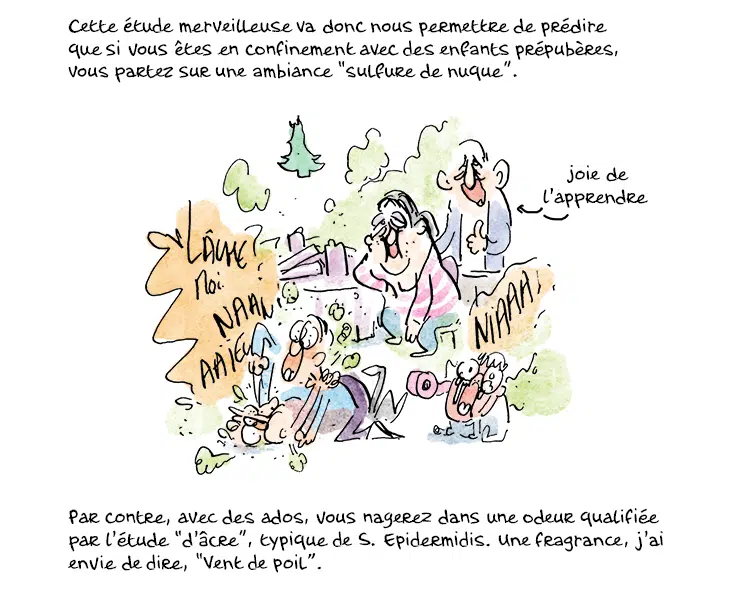 Cette étude merveilleuse va donc nous permettre de prédire
que si vous êtes en confinement avec des enfants prépubères,
vous partez sur une ambiance "sulfure de nuque".
joie de
l'apprendre
LÂCHE
MOI
NAAN
AAIEU
NIAAA!
Par contre, avec des ados, vous nagerez dans une odeur qualifiée
par l'étude "d'âcre", typique de S. Epidermidis. Une fragrance, j'ai
envie de dire, "Vent de poil".